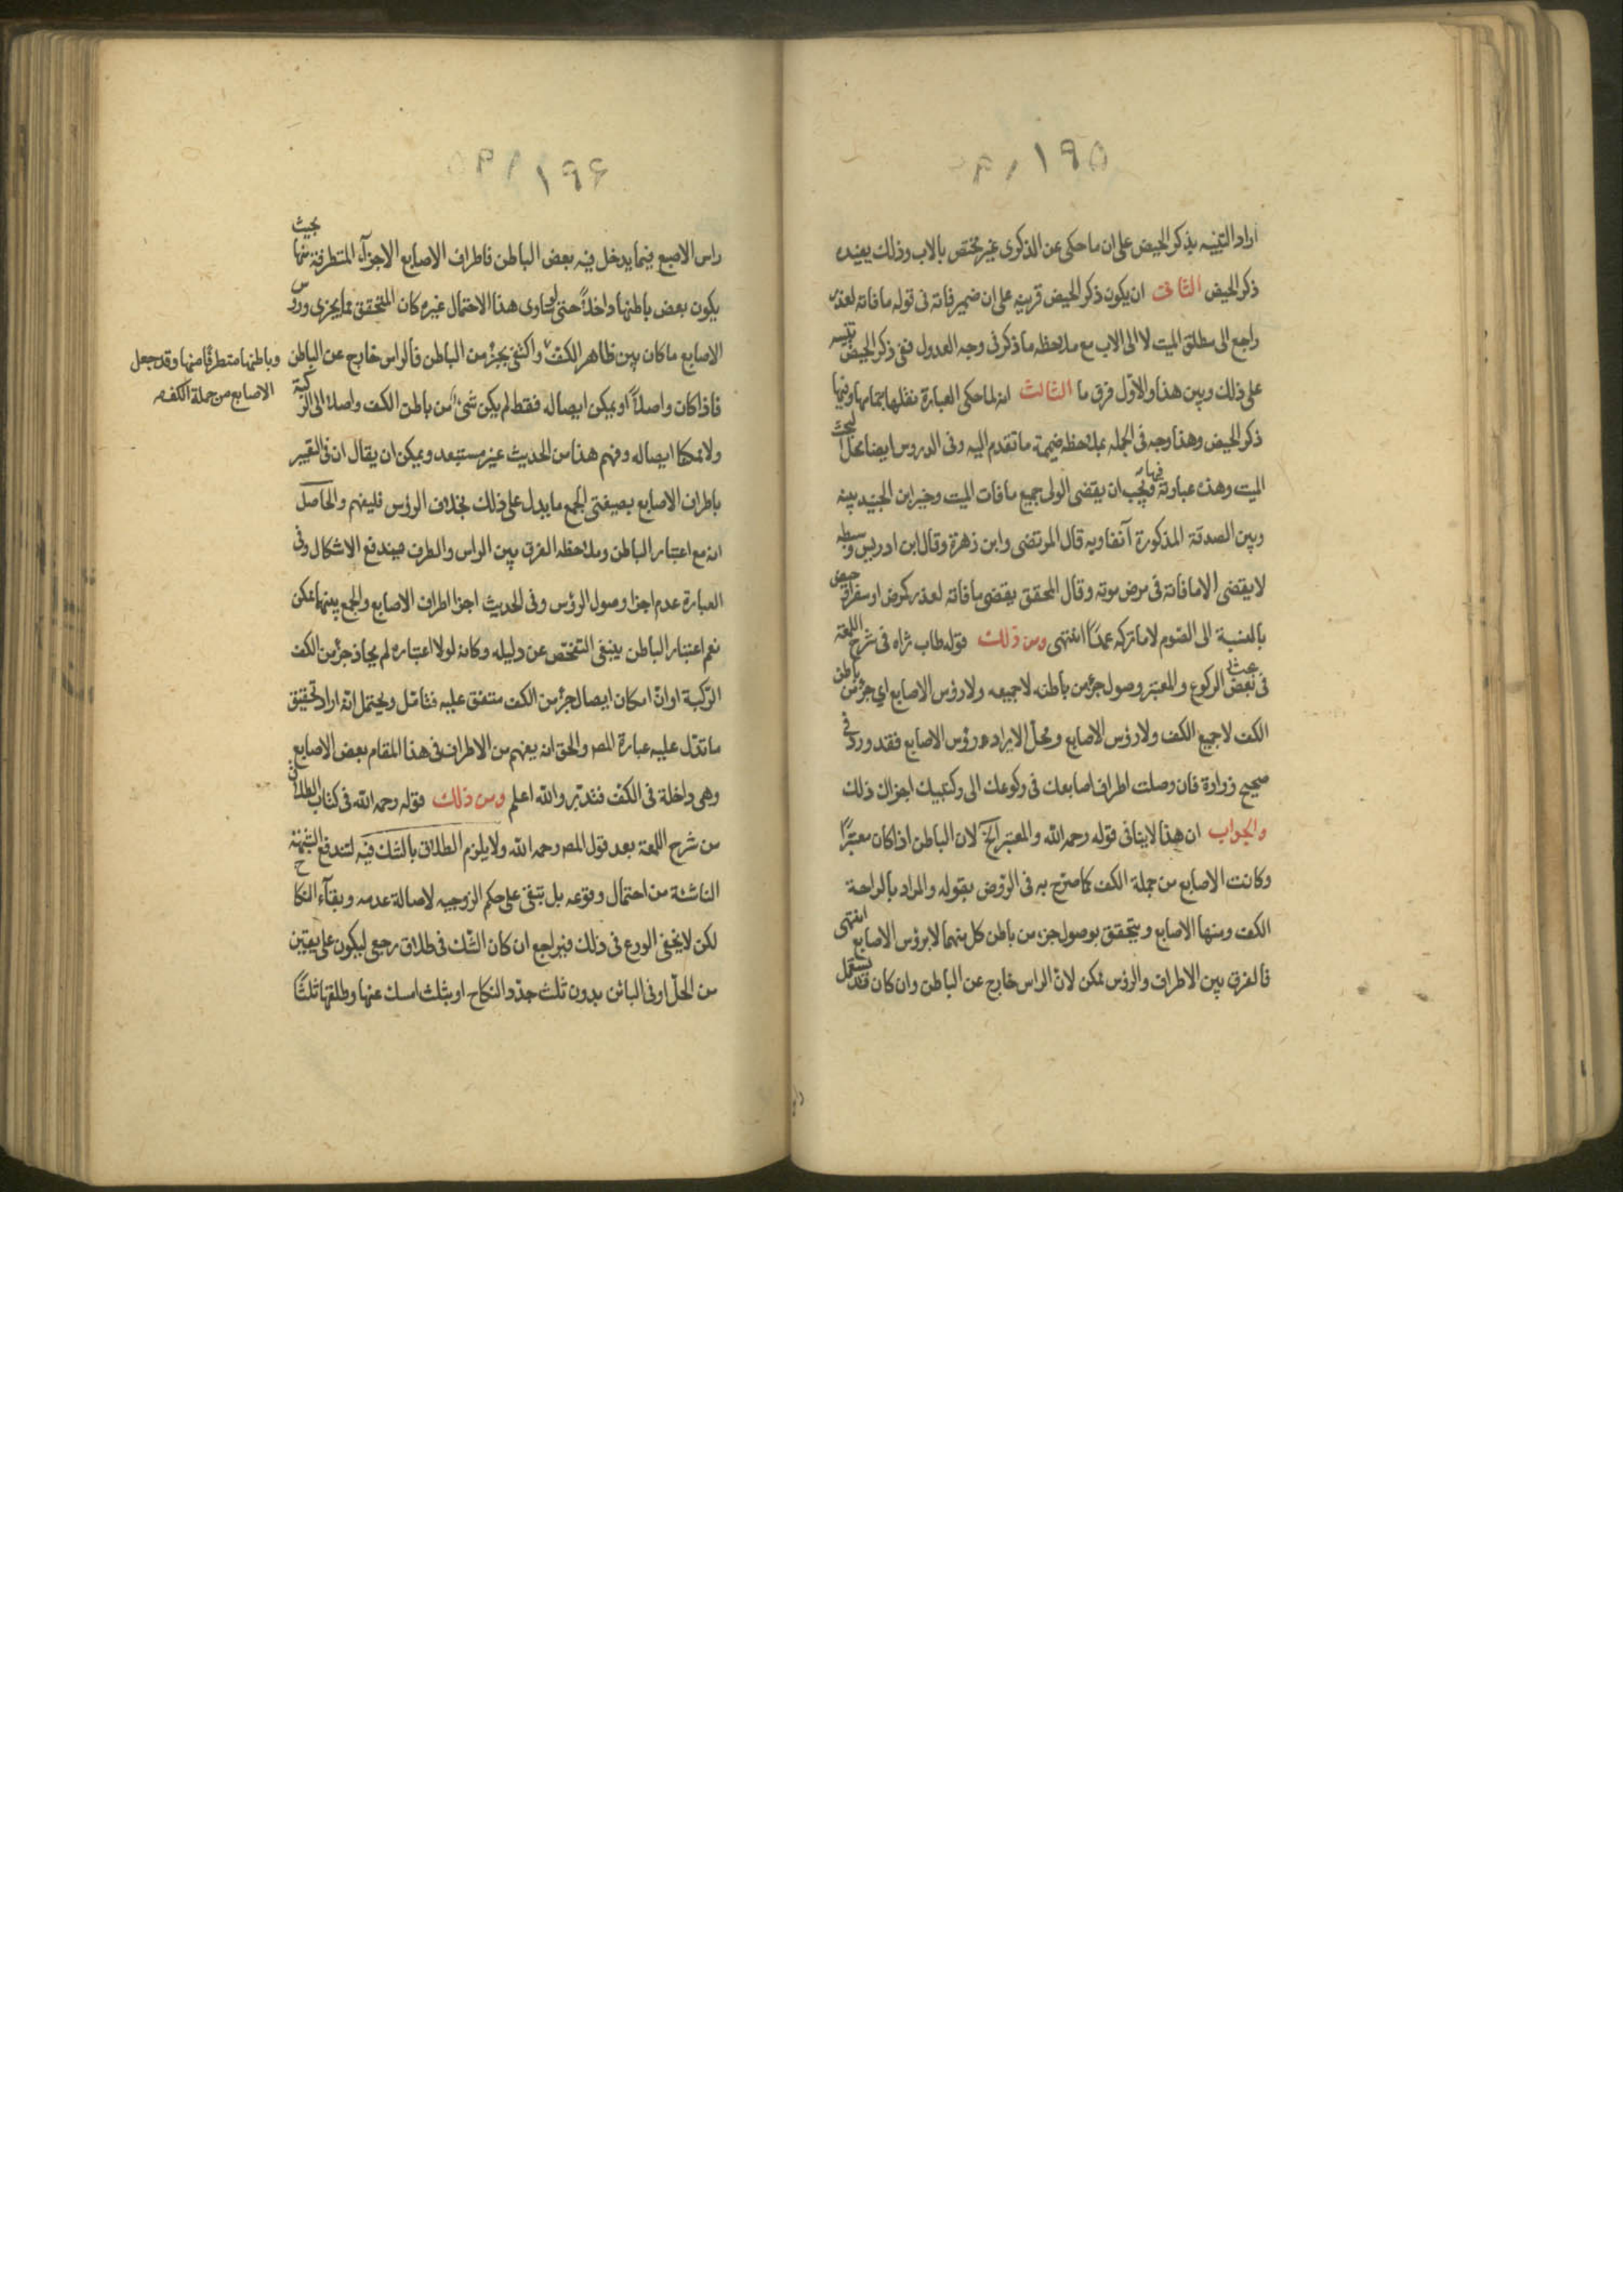 ١٩٥
اراد التنبيه بذكر الحيض على ان ما حكى عن الذكرى غير مختص بالاب وذلك يفيده
ذكر الحيض الثانى ان يكون ذكر الحيض قرينه على ان ضمير فاته فى قوله ما فاته لعذر
راجع الى مطلق الميت لا الى الاب مع ملاحظه ما ذكر فى وجه العدول ففى ذكر الحيض تنبيه
على ذلك وبين هذا والاوّل فرق ما الثالث انه لما حكى العبارة نقلها بتمامها وفيها
ذكر الحيض وهذا وجه فى الجمله بملاحظه ضميمة ما تقدم اليه وفى الدروس ايضا محل البحث
الميت وهذه عبارته فيها ويجب ان يقضى الولى جميع ما فات الميت وخير ابن الجنيد بينه
وبين الصدقة المذكورة آنفا وبه قال المرتضى وابن زهرة وقال ابن ادريس وسبطه
لا يقضى الا ما فاته فى مرض موته وقال المحقق يقضى ما فاته لعذر كمرض او سفر او حيض
بالنسبة الى الصّوم لا ما تركه عمدًا انتهى ومن ذلك قوله طاب ثراه فى شرح اللمعة
فى بحث الركوع والمعتبر وصول جزء من باطنه لا جميعه ولا رؤس الاصابع اي جزء من باطن
الكف لا جميع الكف ولا رؤس الاصابع ومحلّ الايراد رؤس الاصابع فقد ورد فى
صحيح زرارة فان وصلت اطراف اصابعك فى ركوعك الى ركبتيك اجزاك ذلك
والجواب ان هذا لا ينافى قوله رحمه الله والمعتبر الخ لان الباطن اذا كان معتبرًا
وكانت الاصابع من جملة الكف كما صرّح به فى الرّوض بقوله والمراد بالراحة
الكف ومنها الاصابع ويتحقق بوصول جزء من باطن كل منهما لا برؤس الاصابع انتهى
فالفرق بين الاطراف والرؤس ممكن لانّ الراس خارج عن الباطن وان كان قد يستعمل
١٩٦
راس الاصبع فيما يدخل فيه بعض الباطن فاطراف الاصابع الاجزآء المتطرفة منها بحيث
يكون بعض باطنها داخلاً حتى لو ساوى هذا الاحتمال غيره كان المتحقق مما يجزى ورؤس
الاصابع ما كان بين ظاهر الكفّ واكتفى بجزء من الباطن فالراس خارج عن الباطن
وباطنها متطرفا منها وقد جعل
الاصابع من جملة الكف
فاذا كان واصلاً او يمكن ايصاله فقط لم يكن شئ من باطن الكف واصلا الى الركبة
ولا ممكنا ايصاله وفهم هذا من الحديث غير مستبعد ويمكن ان يقال ان فى التعبير
باطراف الاصابع بصيغتى الجمع ما يدل على ذلك بخلاف الرؤس فليفهم والحاصل
انه مع اعتبار الباطن وملاحظه الفرق بين الراس والطرف يندفع الاشكال وفى
العبارة عدم اجزا وصول الرؤس وفى الحديث اجزا اطراف الاصابع والجمع بينهما ممكن
نعم اعتبار الباطن ينبغى التفحّص عن دليله وكانه لولا اعتباره لم يحاذ جزء من الكف
الركبة او انّ امكان ايصال جزء من الكف متفق عليه فتامّل ويحتمل انّه اراد تحقيق
ما تدّل عليه عبارة المصـ والحق انه يفهم من الاطراف فى هذا المقام بعض الاصابع
وهى داخلة فى الكفّ فتدبّر والله اعلم ومن ذلك قوله رحمه الله فى كتاب الطلاق
من شرح اللمعة بعد قول المصـ رحمه الله ولا يلزم الطلاق بالشك فيه لتندفع الشبهة
الناشئة من احتمال وقوعه بل تبقى على حكم الزوجيه لاصالة عدمه وبقآء النكاح
لكن لا يخفى الورع فى ذلك فيراجع ان كان الشّك فى طلاق رجعى ليكون على يقين
من الحلّ او فى البائن بدون ثلث جدّد النكاح او بثلث امسك عنها وطلقها ثلثًا